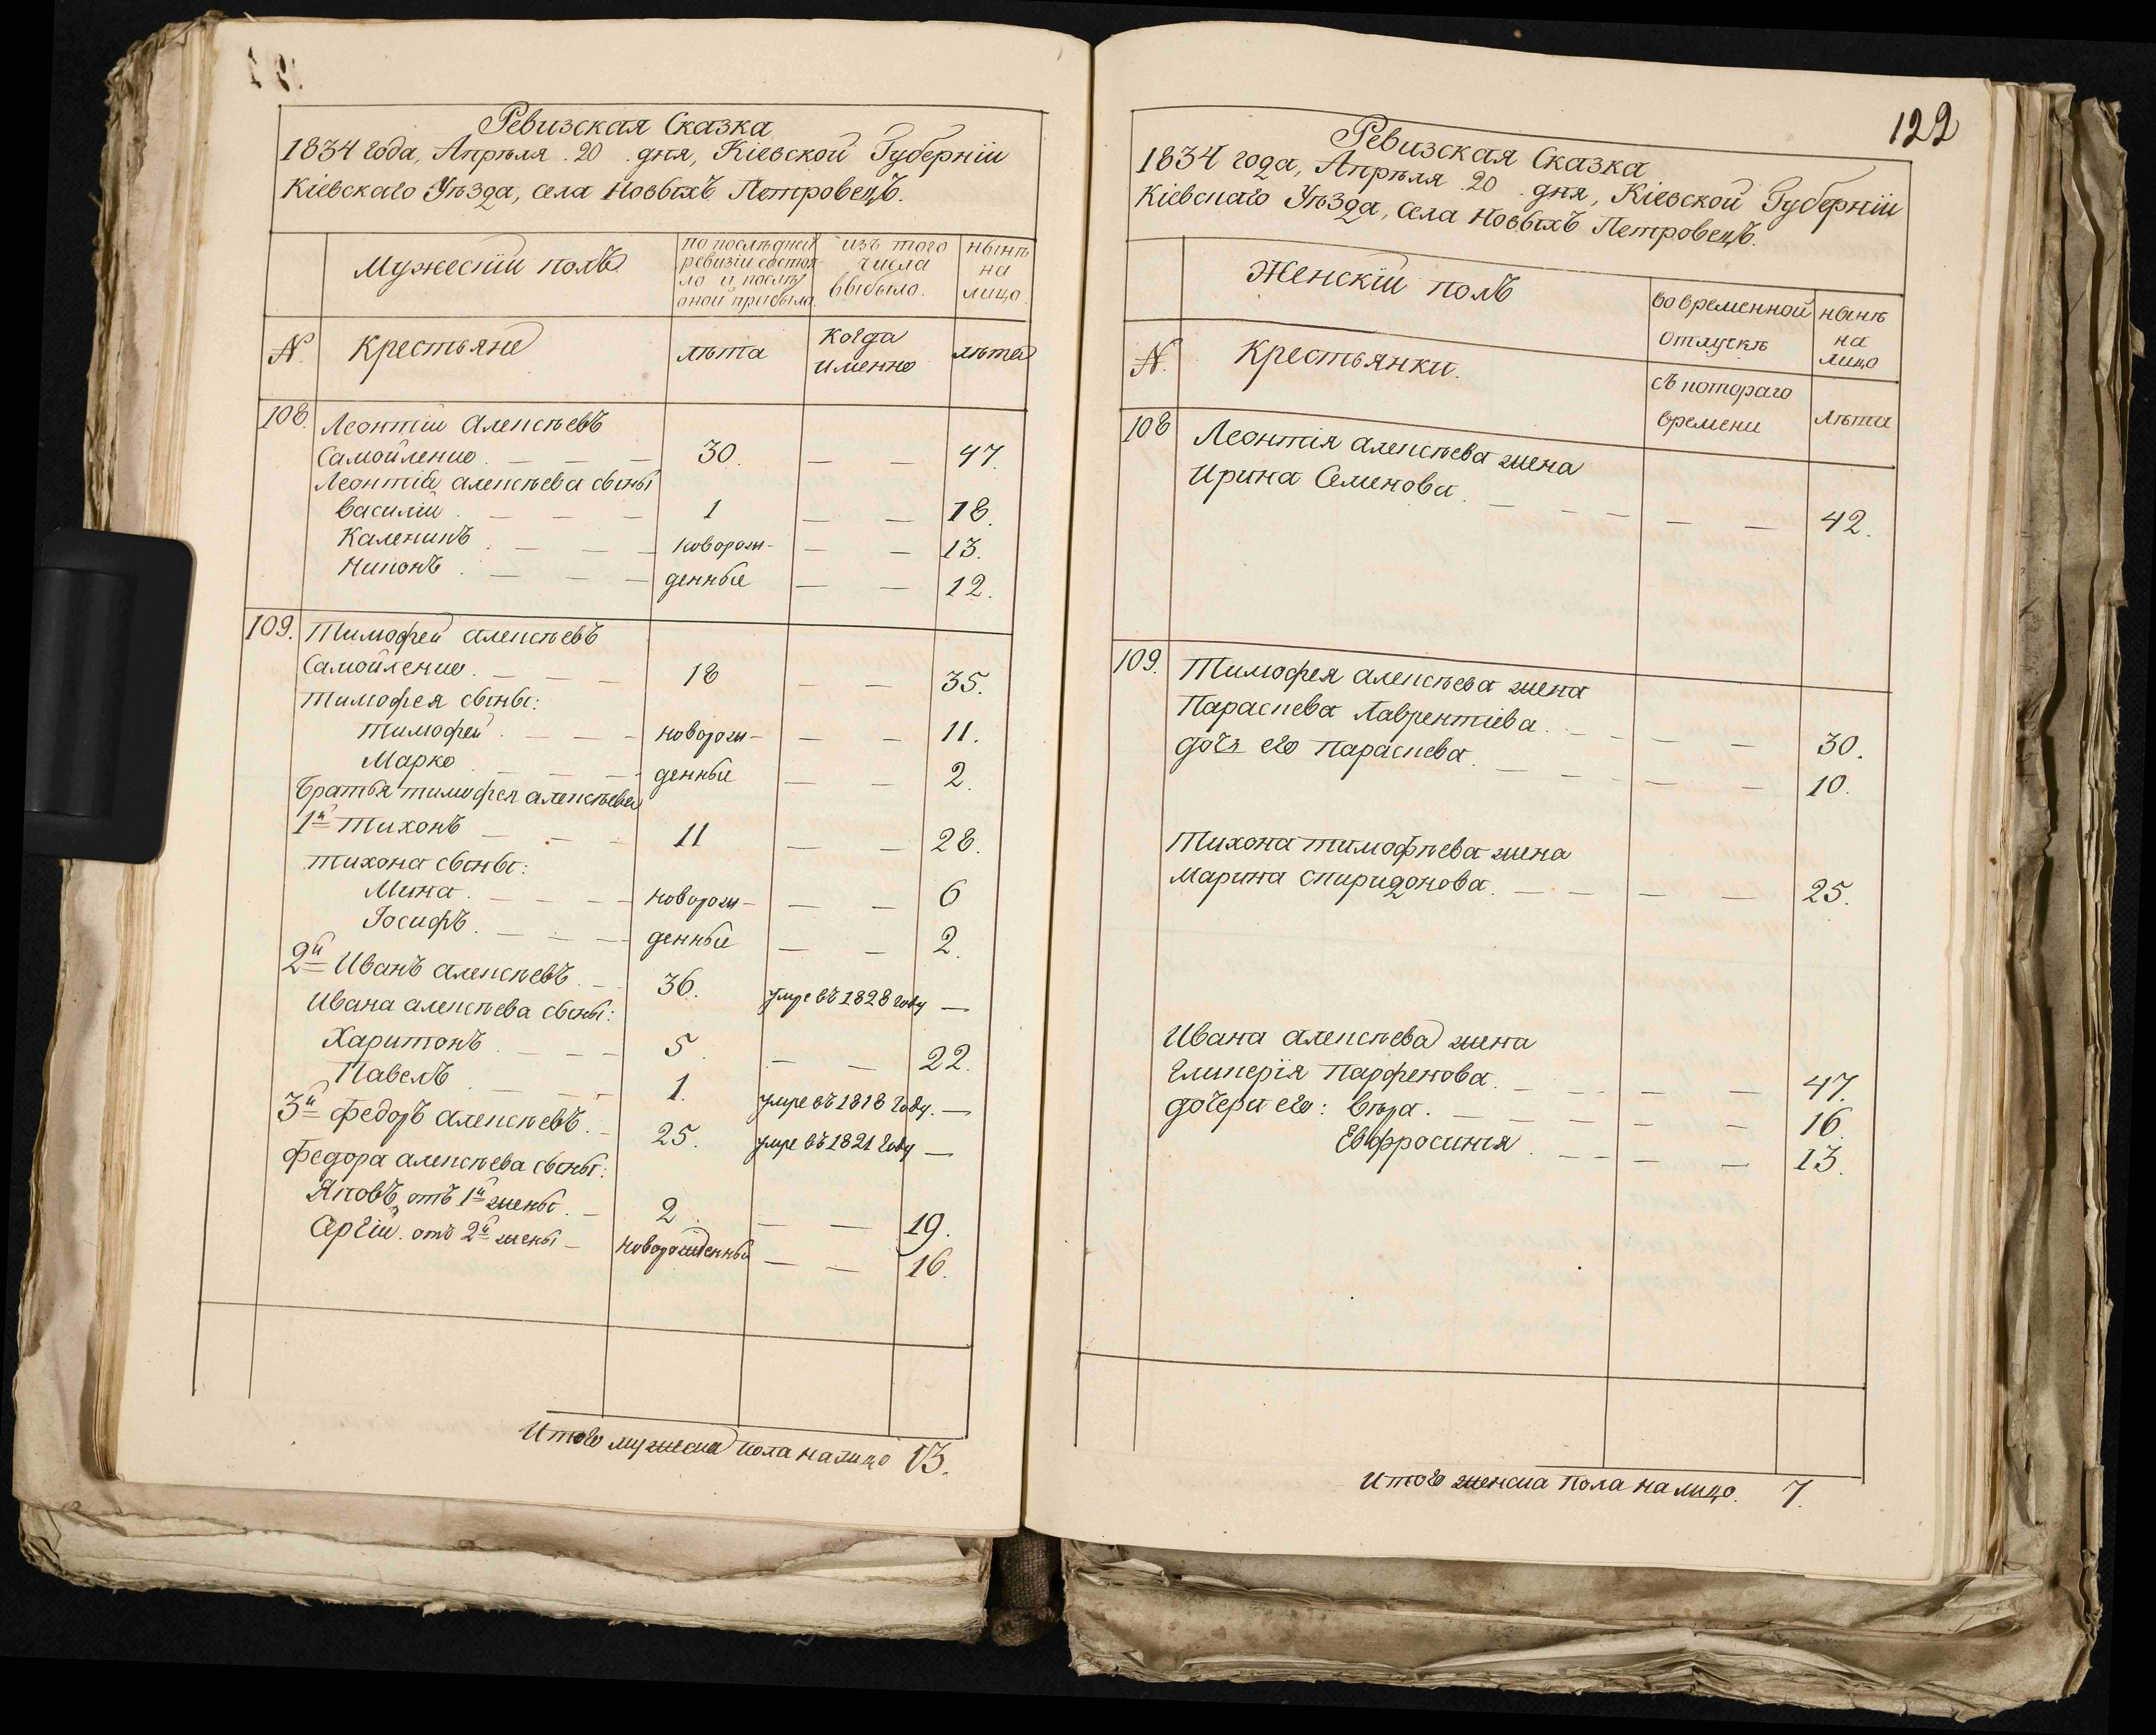 Ревизская Сказка
1834 года, Апрѣля 20 дня, Кіевской Губерніи
Кіевскаго Уѣзда, села Новыхъ Петровецъ.
Мужескій полъ
по послѣдней ревизіи состояло и послѣ оной прибыло.
изъ того числа выбыло.
нынѣ на лицо.
№ Крестьяне лѣта когда именно лѣта
108. Леонтій Алексѣевъ
Самойленко. — — — 30. — — 47.
Леонтія Алексѣева сыны
Василій. — — — 1 — — 18.
Каленикъ. — — — новорож- — — 13.
Никонъ. — — — денные — — 12.
109. Тимофей Алексѣевъ
Самойленко. — — — 18 — — 35.
Тимофея сыны:
Тимофей. — — — новорож- — — 11.
Марко — — — денные — — 2.
Братья Тимофея Алексѣева
1й Тихонъ — — — 11 — — 28.
Тихона сыны:
Мина. — — — новорож- — — 6
Іосифъ. — — — денные — — 2.
2й Иванъ Алексѣевъ. — 36. умре въ 1828 году —
Ивана Алексѣева сыны:
Харитонъ. — — — 5. — — 22.
Павелъ. — — — 1. умре въ 1818 году. —
3й Федоръ Алексѣевъ. — 25. умре въ 1821 году —
Федора Алексѣева сыны:
Яковъ, отъ 1й жены. — 2. — — 19.
Сергій. отъ 2й жены — новорожденный — — 16.
Итого мужеска пола на лицо 13.
122
Ревизская Сказка
1834 года, Апрѣля 20 дня, Кіевской Губерніи
Кіевскаго Уѣзда, села Новыхъ Петровецъ.
Женскій полъ
во временной отлучкѣ
нынѣ на лицо
№. Крестьянки. съ котораго времени лѣта
108 Леонтія Алексѣева жена
Ирина Семенова. — — — — — 42.
109. Тимофея Алексѣева жена
Параскева Лаврентіева. — — — — 30.
дочь его Параскева. — — — — 10.
Тихона Тимофѣева жена
Марина Спиридонова. — — — — 25.
Ивана Алексѣева жена
Гликерія Парфенова. — — — — 47.
дочери его: Вѣра. — — — — 16.
Евфросинія. — — — — 13.
Итого женска пола на лицо. 7.